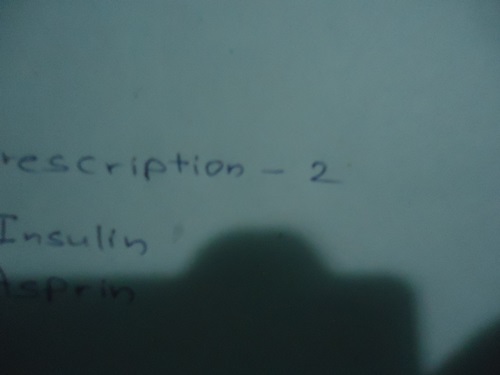 rescription - 2
Insulin
Asprin